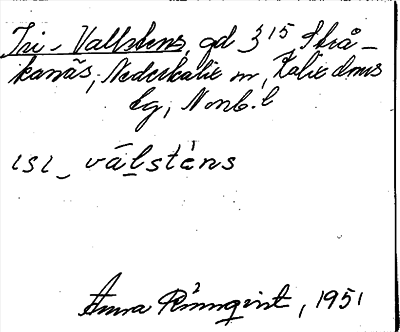 Isi-Vallstens, gd 3 15, Strå-
kanäs, Nederkalix sn, Kalix dms
lg, Nonb. l
ɩsɩ_ vålstèns
Anna Rönnqvist, 1951